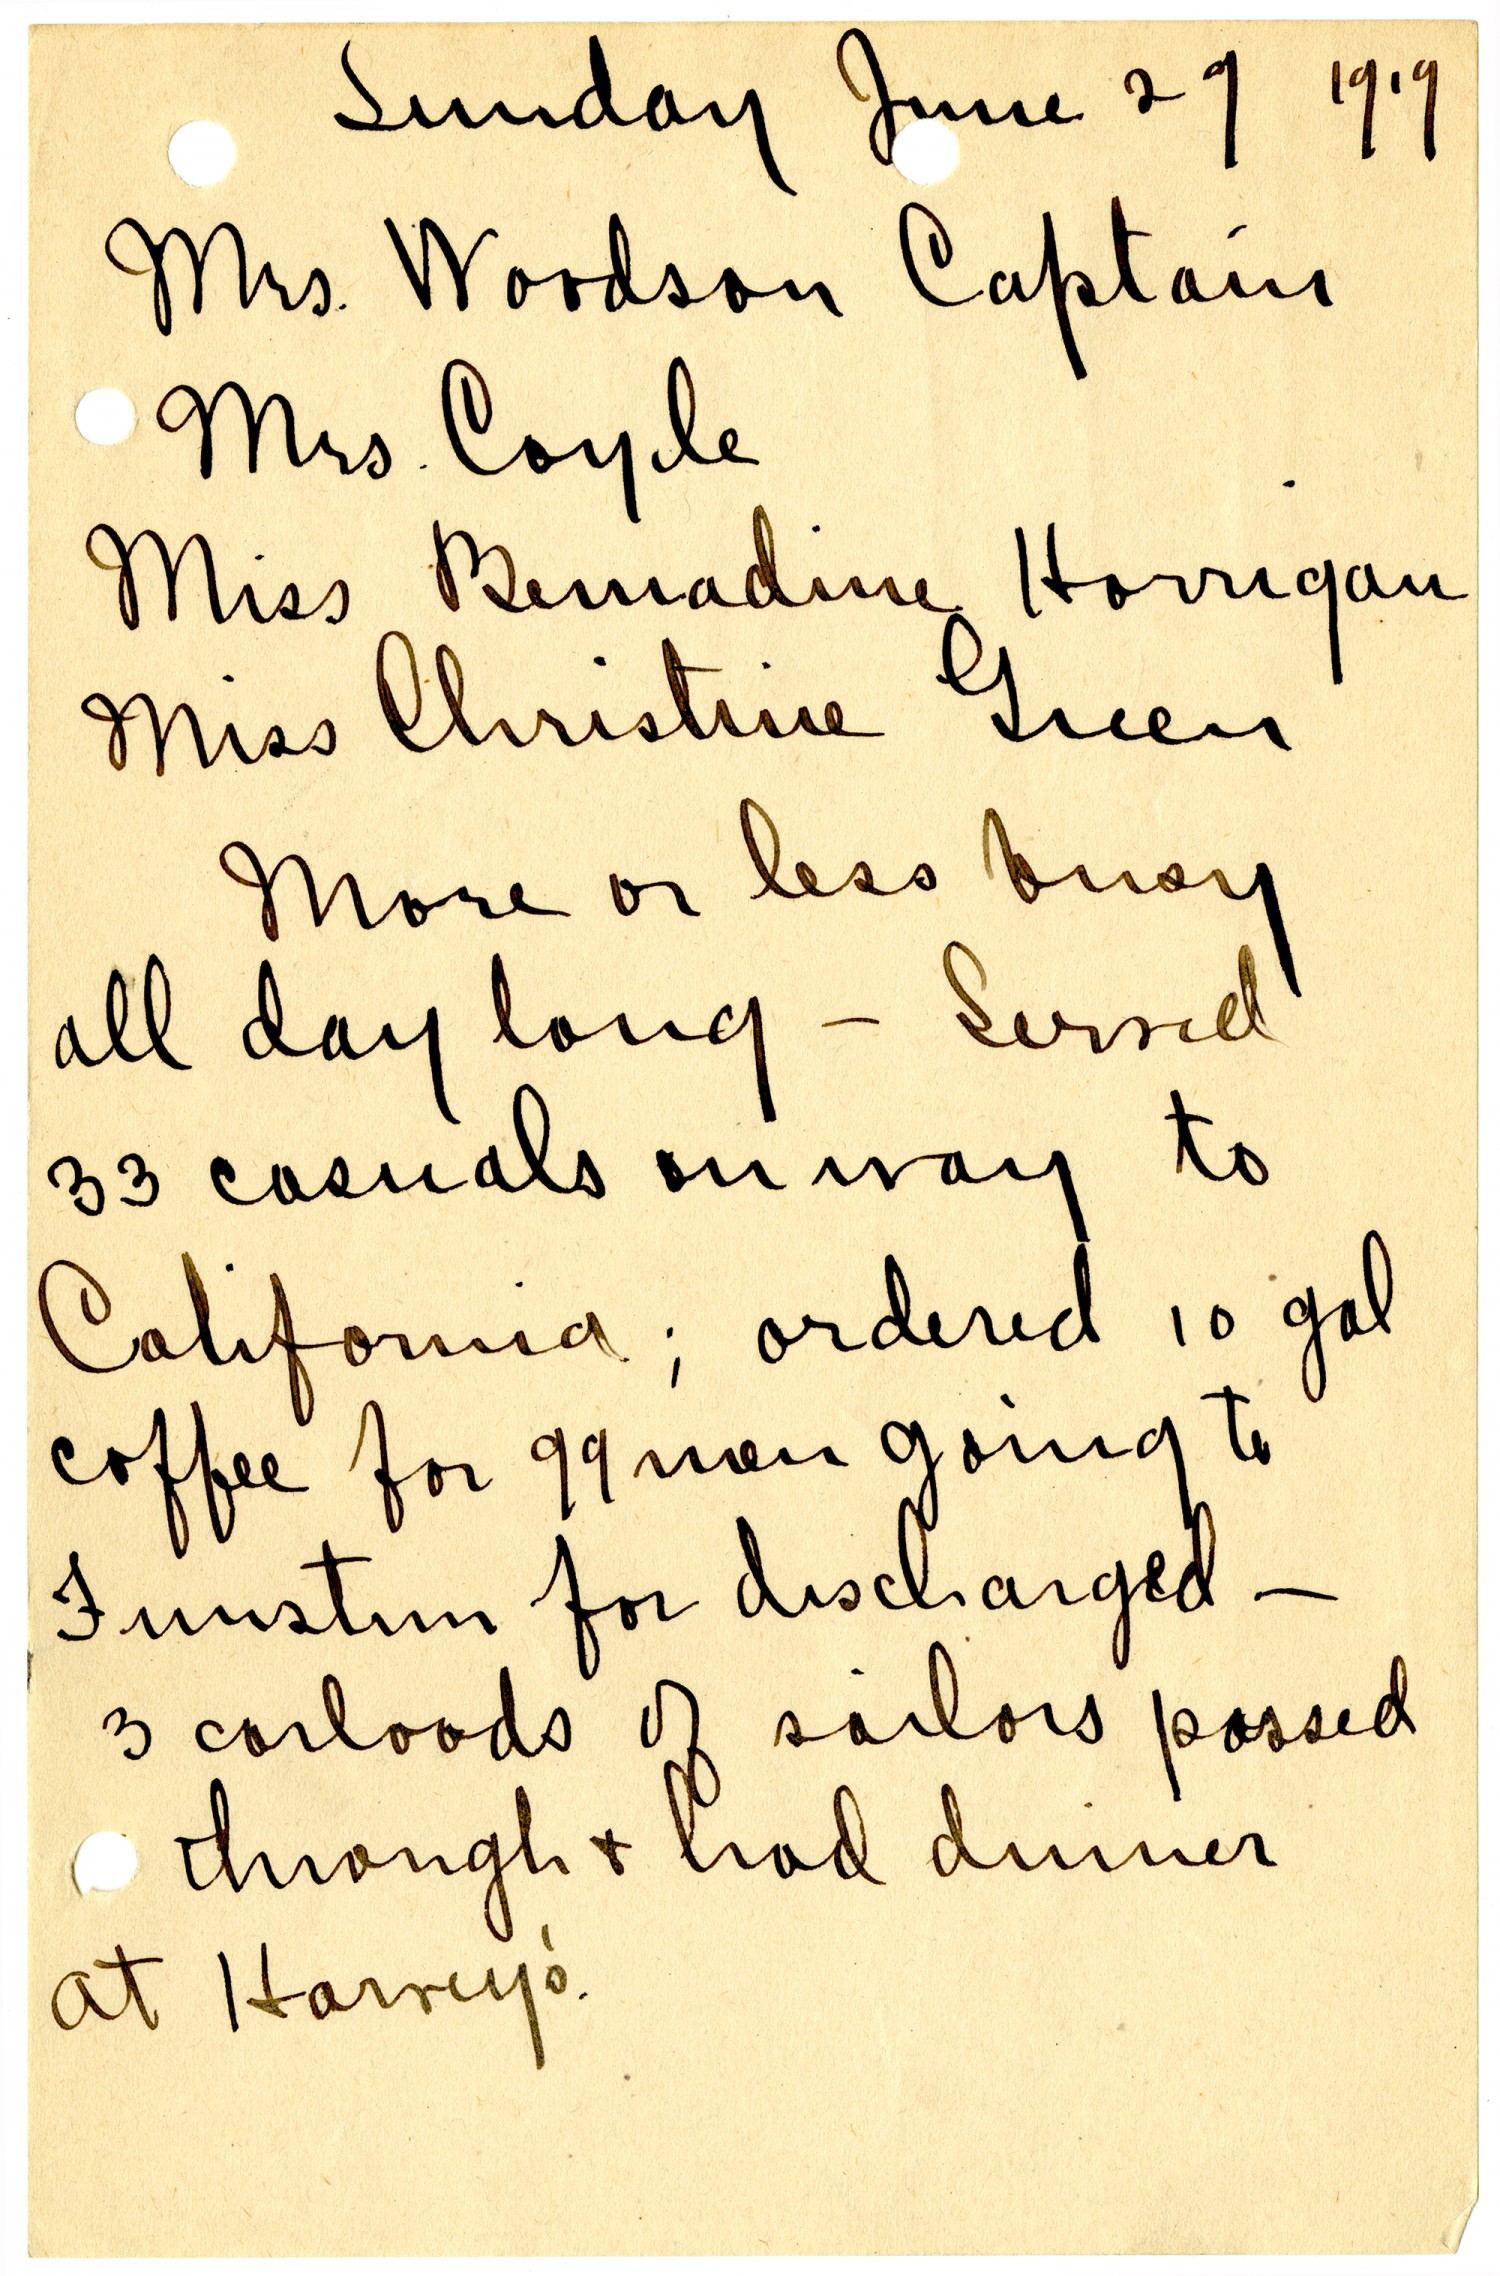 Sunday June 29 1919
Mrs. Woodson Captain
Mrs. Coyle
Miss Bernadine Horrigan
Miss Christine Green
More or less busy
all day long – Served
33 casuals on way to
California; ordered 10 gal
coffee for 99 men going to
Funston for discharged –
3 carloads of sailors passed
through & had dinner
at Harvey's.